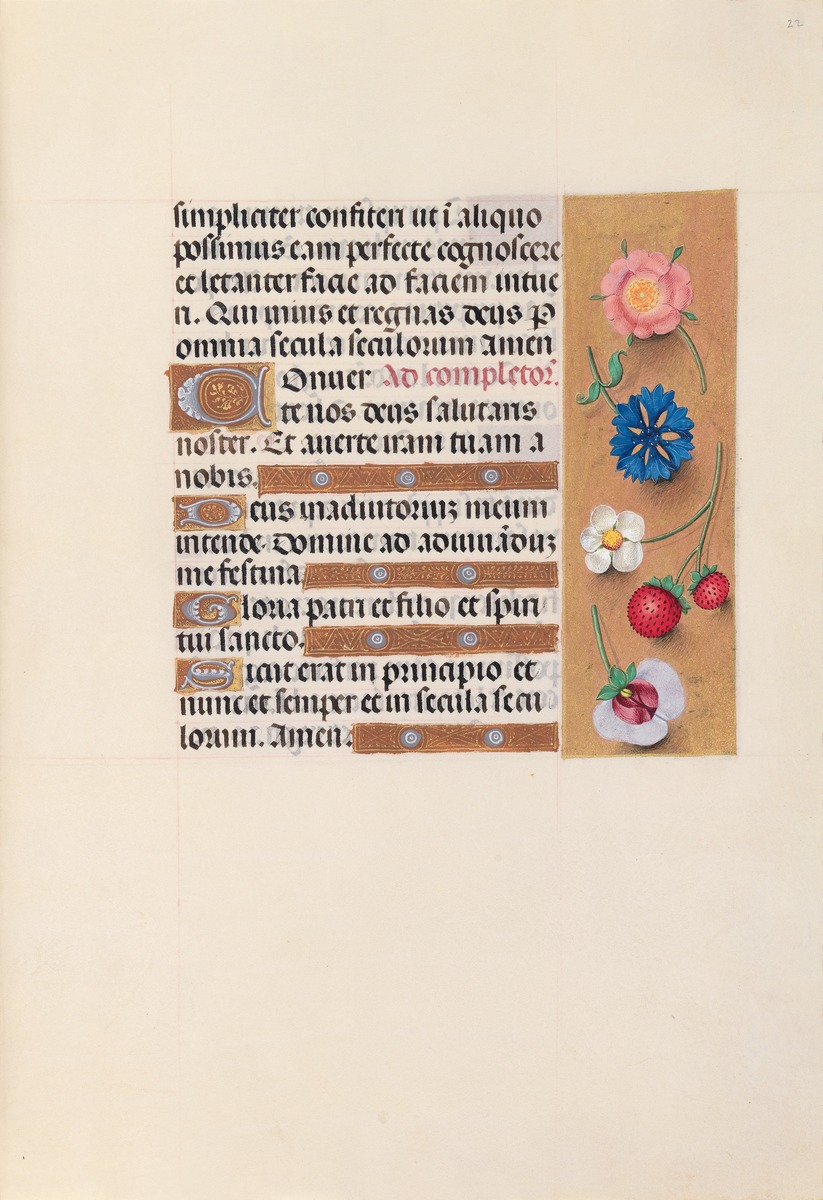 22
simpliciter confiteri ut ī aliquo
possimus eam perfecte cognoscere
et letanter facie ad faciem intue
ri. Qui vivis et regnas deus P
omnia secula seculorum Amen
Onver Ad completor̄.
te nos deus salutaris
noster. Et averte iram tuam a
nobis.
Deus in adiutoriuꝫ meum
intende. Domine ad adiuvāduꝫ
me festina
Gloria patri et filio et spiri
tui sancto.
Sicut erat in principio et
nunc et semper et in secula secu
lorum. Amen.